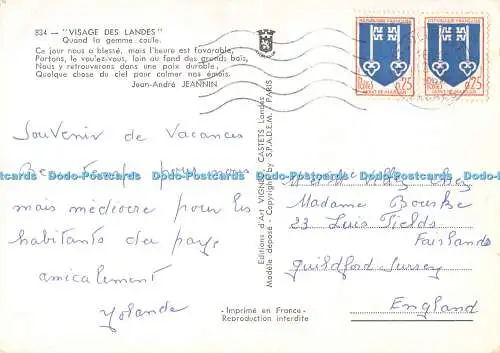 834 - "VISAGE DES LANDES"
Quand la gemme coule.
Ce jour nous a blessé, mais l'heure est favorable,
Partons, le voulez-vous, loin au fond des grands bois,
Nous y retrouverons dans une paix durable,
Quelque chose du ciel pour calmer nos émois.
Jean-André JEANNIN
Souvenir de Vacances
Beau Temps pour nous
mais médiocre pour les
habitants du pays
amicalement
Yolande
Editions d'Art VIGNES - CASTETS Landes
Modèle déposé - Copyright by S.P.A.D.E.M. PARIS
- Imprimé en France -
Reproduction interdite
REPUBLIQUE FRANÇAISE
POSTES
0,25
MONT-DE-MARSAN
REPUBLIQUE FRANÇAISE
POSTES
0,25
MONT-DE-MARSAN
chez
Madame Bourke
23 Luis Fields
Fairlands
Guildford Surrey
England
Dodo-Postcards Dodo-Postcards Dodo-Postcards Dodo-Postcards Dodo-Postcards Dodo-Postcards